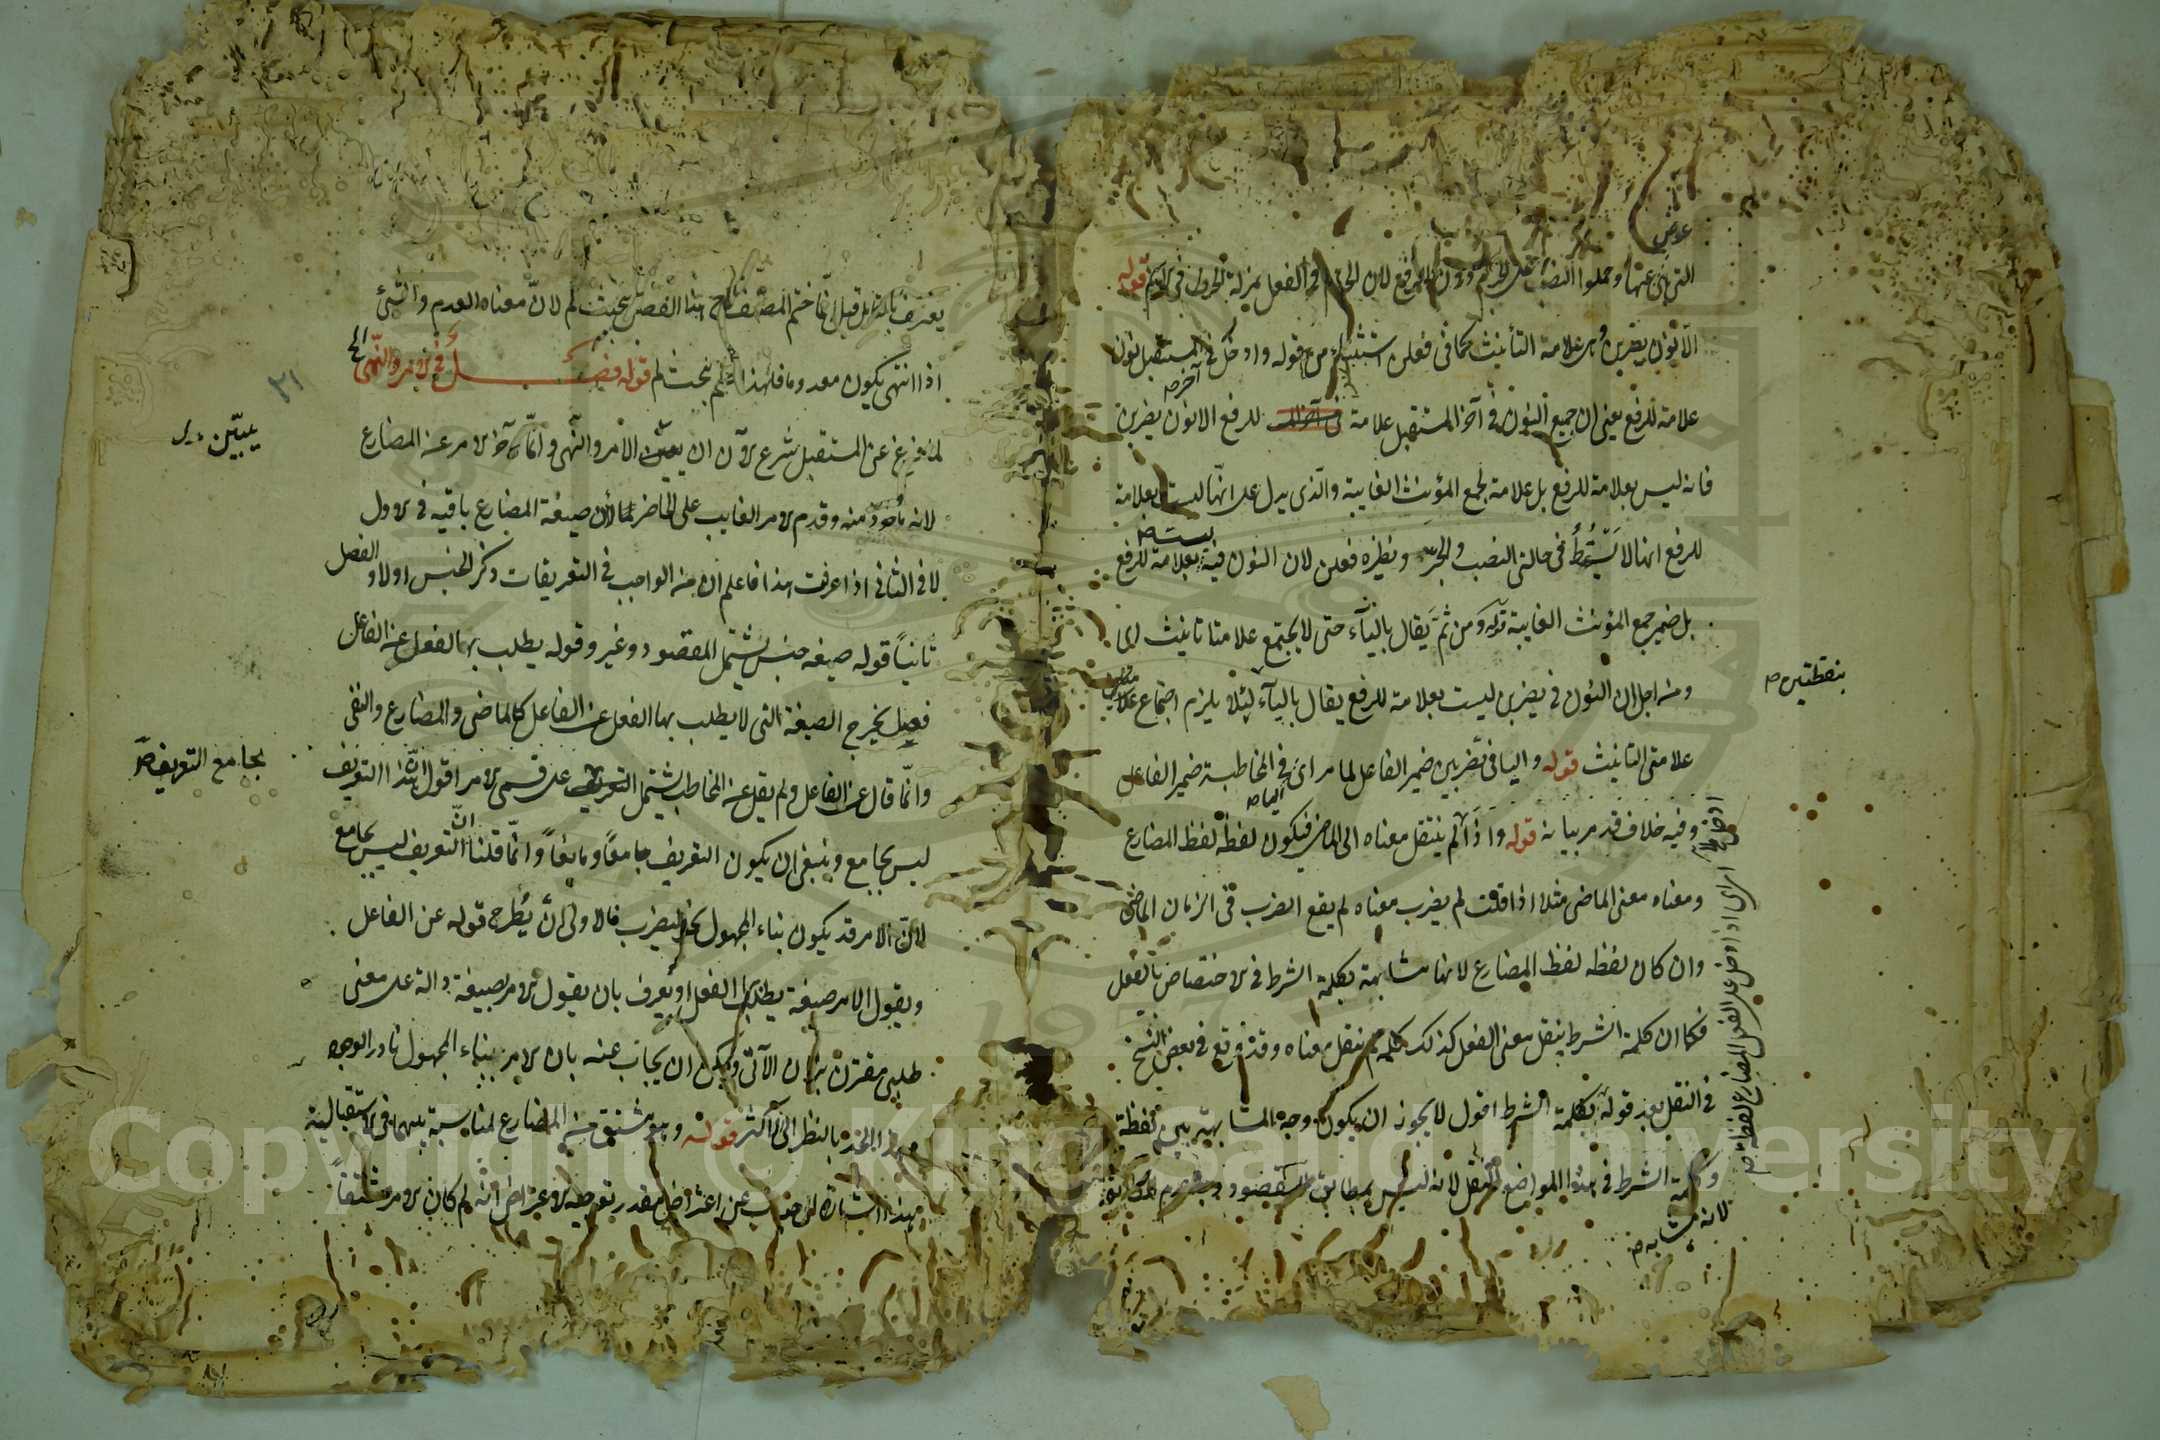 عوض
التي هي عنها وحملوا النصب على الجزم دون الرفع لان الجزم في الفعل بمنزلة الجر في الاسم قوله
الا نون يضربن وهي علامة التأنيث كما في فعلن استثناء من قوله وادخل في المستقبل نون
آخره صح
علامة للرفع يعني ان جميع النون في آخر المستقبل علامة للرفع الا نون يضربن
فانه ليس بعلامة للرفع بل علامة لجمع المؤنث الغايبة والذي يدل على انها ليست بعلامة
للرفع انها لا تسقط في حالتي النصب والجزم ونظيره فعلن لان النون فيه ليست صح بعلامة للرفع
بل ضمير جمع المؤنث الغايبة قوله ومن ثم يقال بالياء حتى لا يجتمع علامتا تانيث اى
بنقطتين صح
ومن اجل ان النون في يضربن ليست بعلامة للرفع يقال بالياء لئلا يلزم اجتماع
علامتي التانيث قوله واليا في تضربين ضمير الفاعل لما مر اى في المخاطبة ضمير الفاعل
الياء صح
وفيه خلاف قد مر بيانه قوله واذا لم ينتقل معناه الى الماضي فيكون لفظه لفظ المضارع
ومعناه معنى الماضي مثلا اذا قلت لم يضرب معناه لم يقع الضرب في الزمان الماضي
وان كان لفظه لفظ المضارع لانها مشابهة بكلمة الشرط في الاختصاص بالفعل
فكما ان كلمة الشرط ينقل معنى الفعل كذلك كلمة لم ينقل معناه وقد وقع في بعض النسخ
في النقل بعد قوله بكلمة الشرط اقول لا يجوز ان يكون وجه المشابهة بين لفظة
وكلمة الشرط في هذا المواضع النقل لانه ليس بمطابق للمقصود
لانه مشابه صح
اى اذا دخل على الفعل المضارع لفظة صح
يعرف بالتأمل قيل انما ختم المصنف هذا الفصل ببحث لم لان معناه العدم والشئ
اذا انتهى يكون معدوما فلهذا ختم ببحث لم قوله فصل في الامر والنهي الخ
٣١
يبيّن
لما فرغ عن المستقبل شرع الآن ان يبين الامر والنهي وانما اخر الامر عن المضارع
لانه مأخوذ منه وقدم الامر الغايب على الحاضر لان صيغة المضارع باقية في الاول
لا في الثاني اذا عرفت هذا فاعلم ان من الواجب في التعريفات ذكر الجنس اولا والفصل
ثانيا قوله صيغة جنس يشتمل المقصود وغير وقوله يطلب بها الفعل عن الفاعل
فصل يخرج الصيغة التي لا يطلب بها الفعل عن الفاعل كالماضي والمضارع والنفي
بجامع التعريف صح
وانما قال عن الفاعل ولم يقل عن المخاطب ليشتمل التعريف على قسمي الامر اقول هذا التعريف
ليس بجامع وينبغي ان يكون التعريف جامعا ومانعا وانما قلنا ان التعريف ليس بجامع
لان الامر قد يكون بناء المجهول نحو ليضرب فالاولى ان يطرح قوله عن الفاعل
ويقول الامر صيغة يطلب بها الفعل او يعرف بان يقول الامر صيغة دالة على معنى
طلبي مقترن بزمان الآتي ويمكن ان يجاب عنه بان الامر ببناء المجهول نادر الوجود
بالنظر الى الاكثر قوله وهو مشتق من المضارع لمناسبة بينهما في الاستقبالية
هذا اشارة الى جواب عن اعتراض مقدر توجيه الاعتراض انه لم كان الامر مشتقا